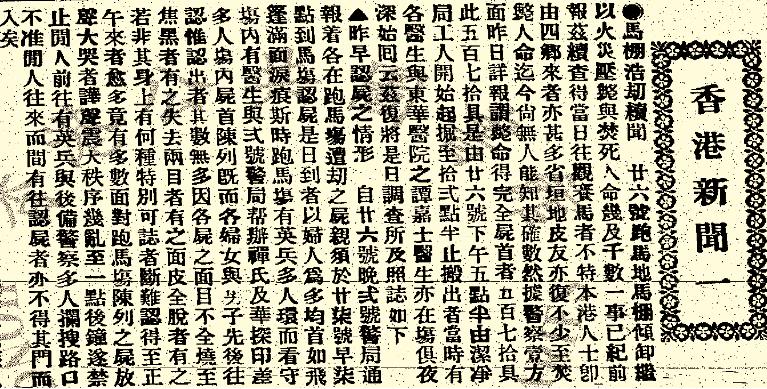 香港新聞一
●馬棚浩刼續聞　廿六號跑馬地馬棚傾卸繼
以火災壓斃與焚死人命幾及千數一事已紀前
報茲續查得當日往觀賽馬者不特本港人士卽
由四鄉來者亦甚多省垣地皮友亦復不少至焚
斃人命迄今尙無人能知其確數然據警察壹方
面昨日詳報謂斃命得完全屍首者五百七拾具
此五百七拾具是由廿六號下午五點半由潔凈
局工人開始起掘至拾弍點半止搬出者當時有
各醫生與東華醫院之譚嘉士醫生亦在塲俱夜
深始囘云茲復將是日調查所及照誌如下
▲昨早認屍之情形　自廿六號晚弍號警局通
報着各在跑馬塲遭刼之屍親須於廿柒號早柒
點到馬塲認屍是日到者以婦人爲多均首如飛
蓬滿面淚痕斯時跑馬塲有英兵多人環而看守
塲內有醫生與弍號警局帮辦禪氏及華探印差
多人塲內屍首陳列旣而各婦女與男子先後往
認惟認出者其數無多因各屍之面目不全燒至
焦黑者有之失去兩目者有之面皮全脫者有之
若非其身上有何種特別可誌者斷難認得至正
午來者愈多竟有多數面對跑馬塲陳列之屍放
聲大哭者譁聲震大秩序幾亂至一點後鐘遂禁
止閒人前往有英兵與後備警察多人攔搜路口
不准閒人往來而間有往認屍者亦不得其門而
入矣